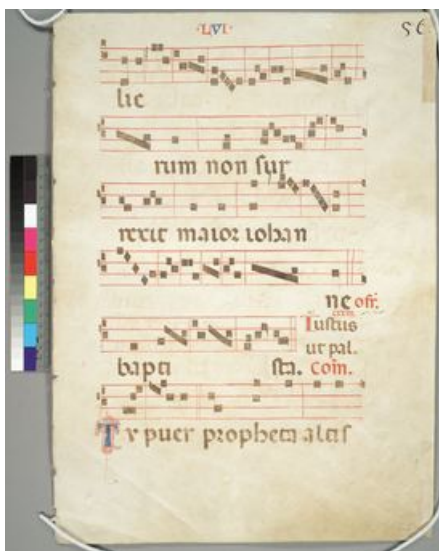 ·LVI· 56
lic
rum non sur
rexit maior iohan
ne off.
Iustus
ut pal.
bapti sta. Com.
Tv puer propheta altis